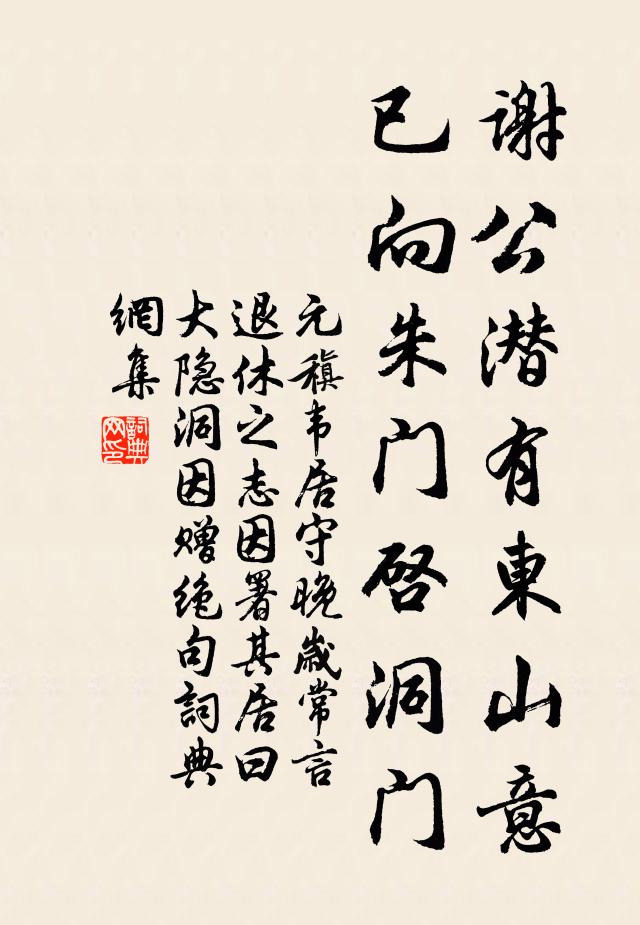 谢公潜有東山意
已向朱门啓洞门
元稹韦居守晚歲常言
退休之志因署其居曰
大隐洞因赠绝句詞典
網集
詞典
网印